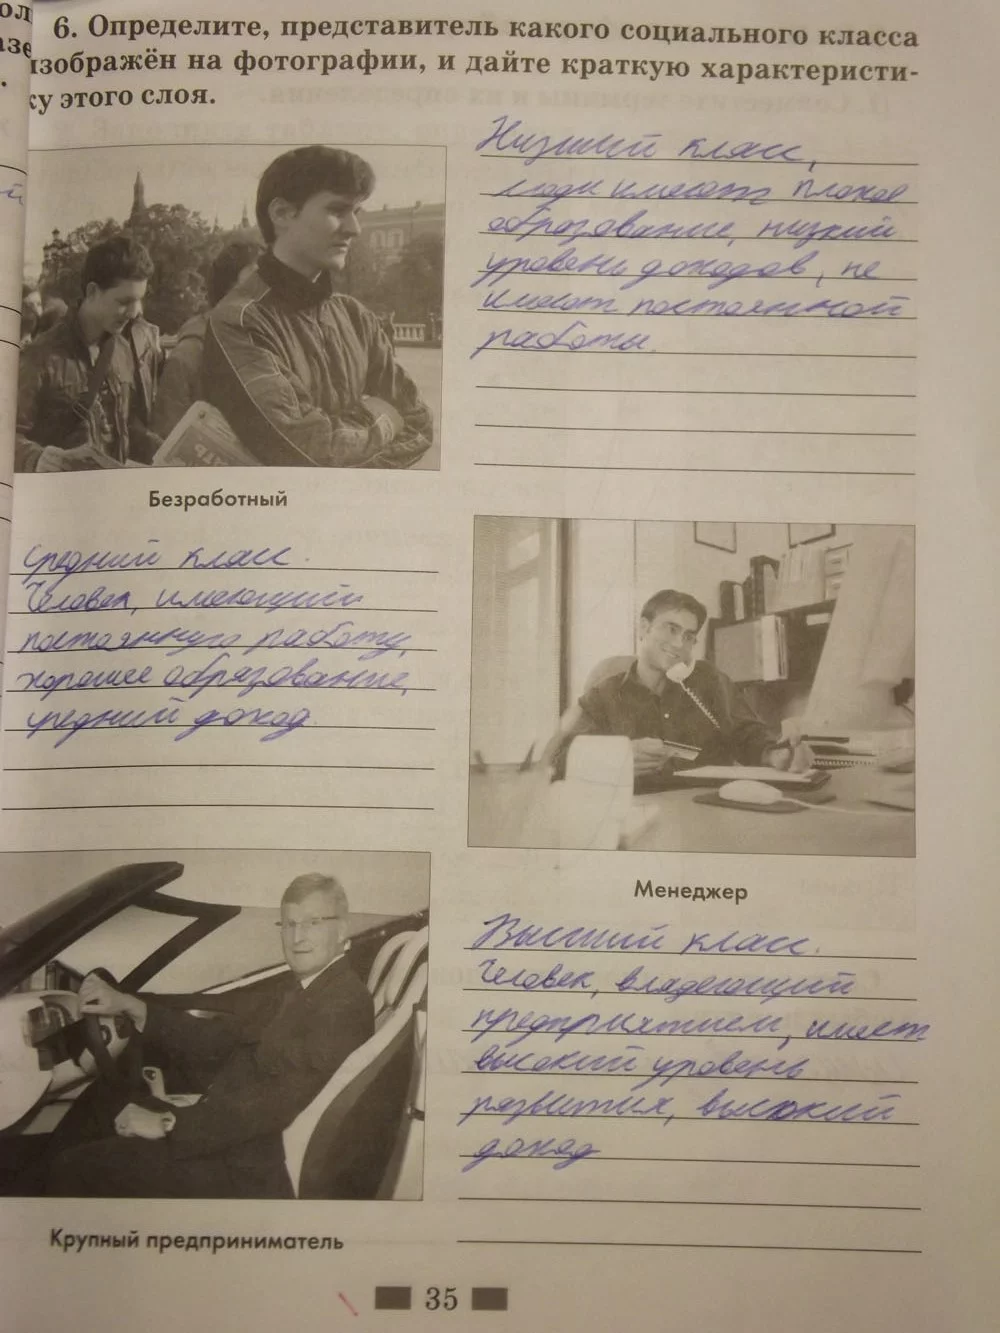 ол
азе
.
й
6. Определите, представитель какого социального класса
изображён на фотографии, и дайте краткую характеристи-
ку этого слоя.
Низший класс,
люди имеют плохое
образование, низкий
уровень доходов, не
имеют постоянной
работы.
Безработный
Средний класс.
Человек, имеющий
постоянную работу,
хорошее образование,
средний доход.
Менеджер
Высший класс.
Человек, владеющий
предприятием, имеет
высокий уровень
развития, высокий
доход
Крупный предприниматель
35